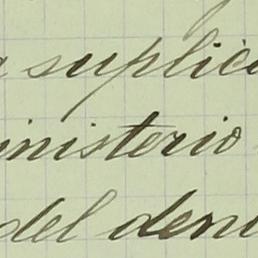 a suplica
inisterio
del den